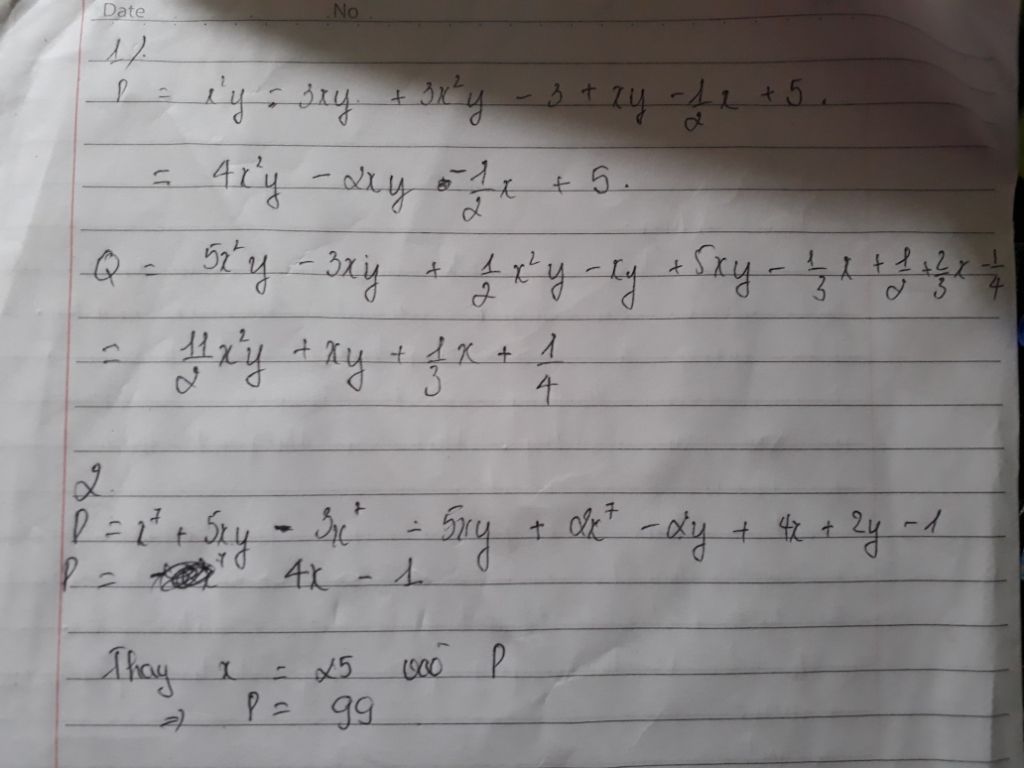 Date No
1).
P = x²y - 3xy + 3x²y - 3 + xy - 1/2 x + 5.
= 4x²y - 2xy - 1/2 x + 5.
Q = 5x²y - 3xy + 1/2 x²y - xy + 5xy - 1/3 x + 1/2 + 2/3 x - 1/4
= 11/2 x²y + xy + 1/3 x + 1/4
2.
P = x⁷ + 5xy - 3x⁷ - 5xy + 2x⁷ - 2y + 4x + 2y - 1
P = 4x - 1
Thay x = 25 vào P
=> P = 99